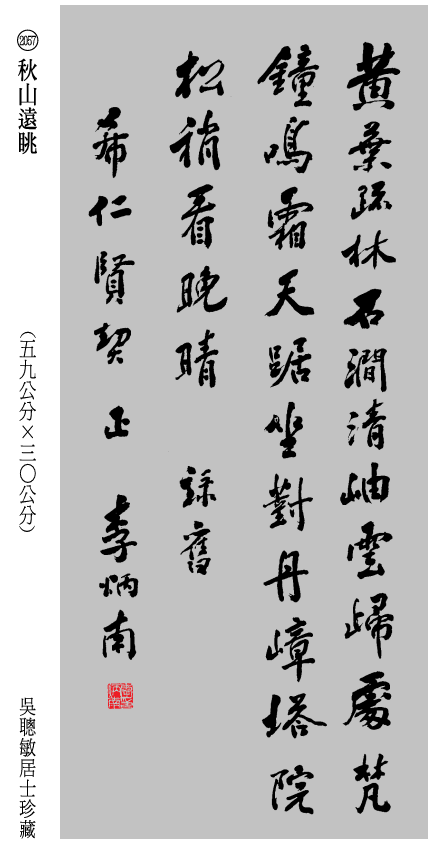 2057
秋山遠眺
（五九公分×三〇公分）
吳聰敏居士珍藏
黃葉疏林石澗清岫雲歸處梵
鐘鳴霜天踞坐對丹嶂塔院
松梢看晚晴 錄舊
希仁賢契 正 李炳南